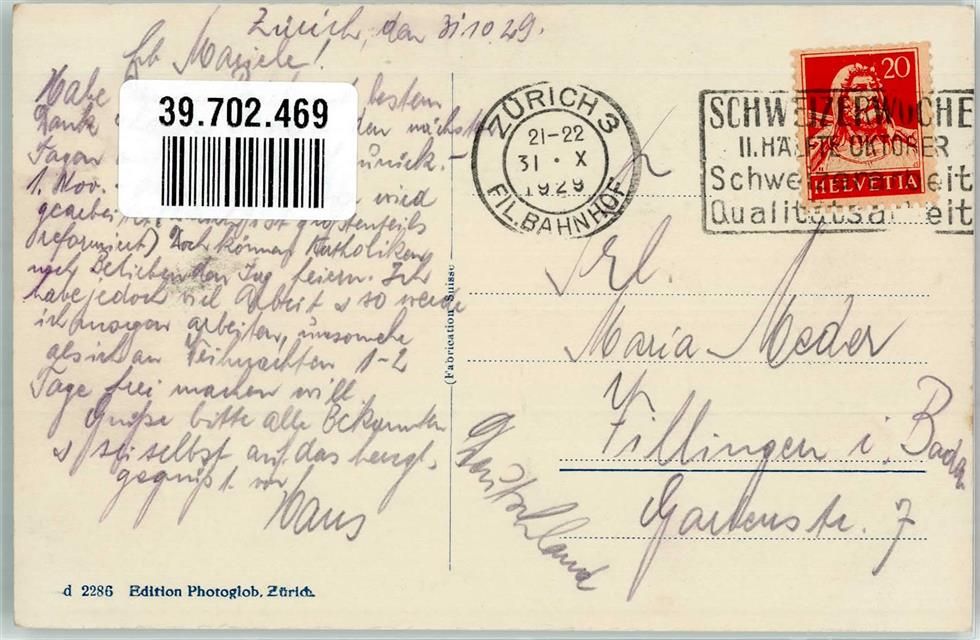 Zürich, den 31.10.29.
Lb. Mariele!
Habe bestem
Dank den nächsten
Tagen zurück.-
1. Nov. wird
gearbeitet ist grösstenteils
reformiert) Doch können Katholiken
nach Belieben den Tag feiern. Ich
habe jedoch viel Arbeit u so werde
ich morgen arbeiten, umsomehr
als ich an Weihnachten 1-2
Tage frei machen will
Grüße bitte alle Bekannten
u sei selbst auf das herzl.
gegrüßt von
Hans
39.702.469
ZÜRICH 3
21-22
31 · X
1929
FIL. BAHNHOF
SCHWEIZERWOCHE
II. HÄLFTE OKTOBER
Schweizerarbeit
Qualitätsarbeit
20
HELVETIA
Frl.
Maria Meder
Villingen i. Baden
Gartenstr. 7
Deutschland
(Fabrication Suisse)
d 2286 Edition Photoglob, Zürich.